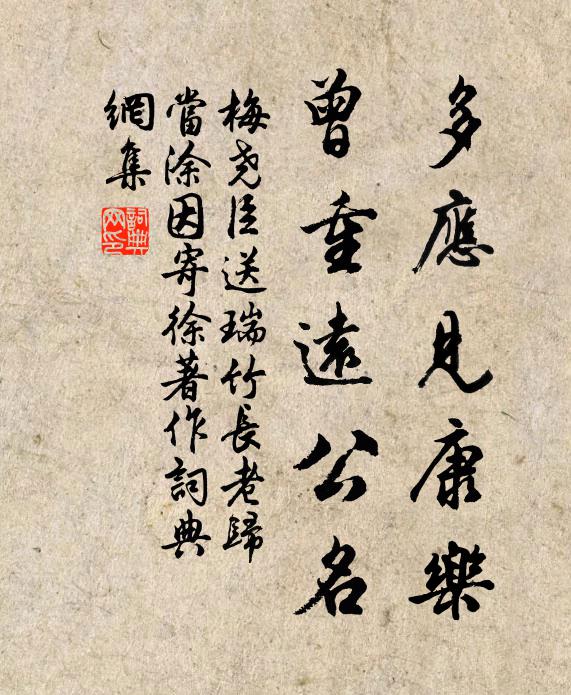 多應見康樂
曾重遠公名
梅堯臣送瑞竹長老歸
當涂因寄徐著作詞典
網集
詞典
网印